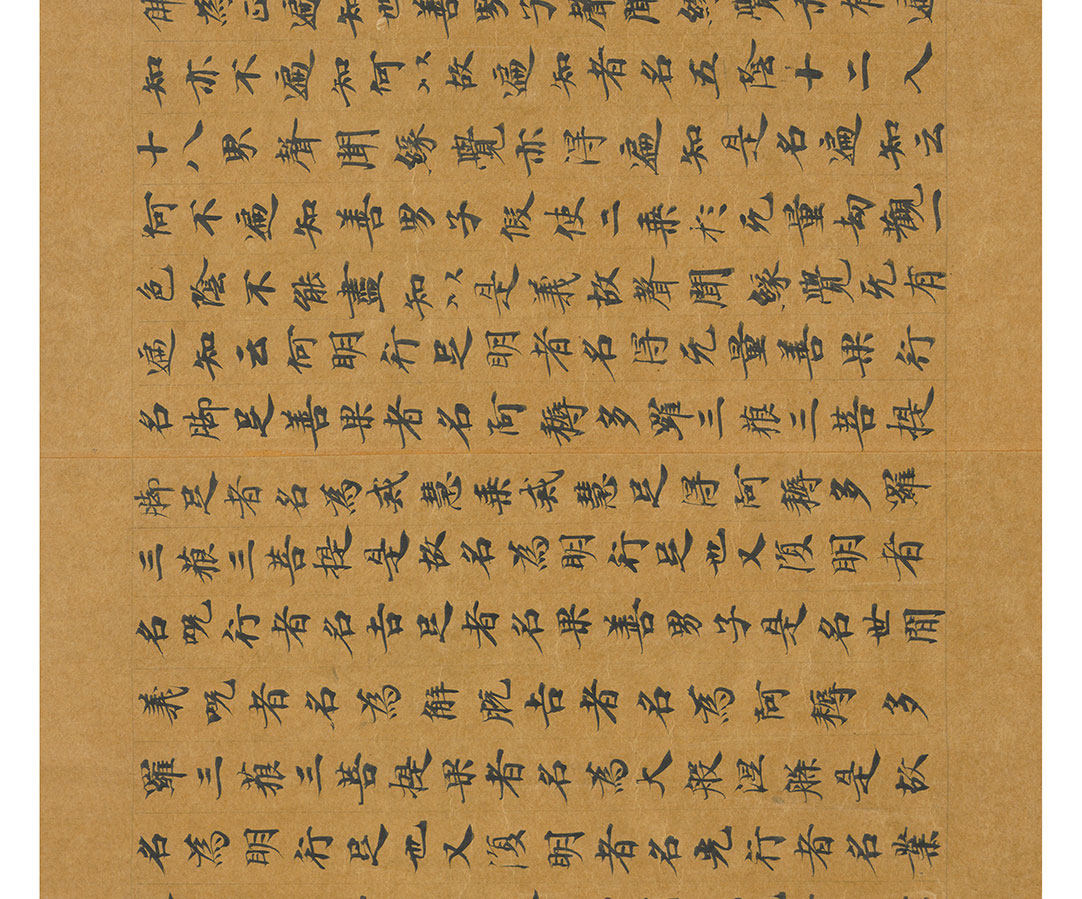 為正遍知也善男子聲聞緣覺亦有遍
知亦不遍知何以故遍知者名五陰十二入
十八界聲聞緣覺亦得遍知是名遍知云
何不遍知善男子假使二乘於无量劫觀一
色陰不能盡知以是義故聲聞緣覺无有
遍知云何明行足明者名得无量善果行
名脚足善果者名阿耨多羅三藐三菩提
脚足者名為戒慧乘戒慧足得阿耨多羅
三藐三菩提是故名為明行足也又復明者
名呪行者名吉足者名果善男子是名世間
義呪者名為解脫吉者名為阿耨多
羅三藐三菩提果者名為大般涅槃是故
名為明行足也又復明者名光行者名業